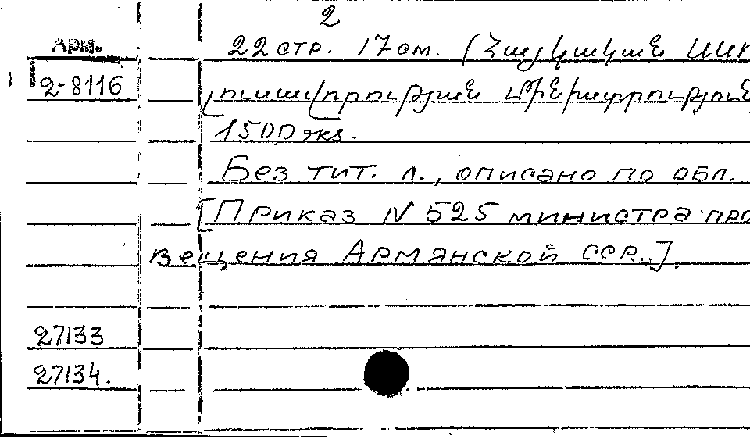 2
Арм. 22 стр. 17 см. (Հայկական ՍՍՀ
2-8116 լուսավորության մինիստրություն
1500 экз.
Без тит. л., описано по обл.
[Приказ N 525 министра про
вещения Армянской ССР.].
27133
27134.